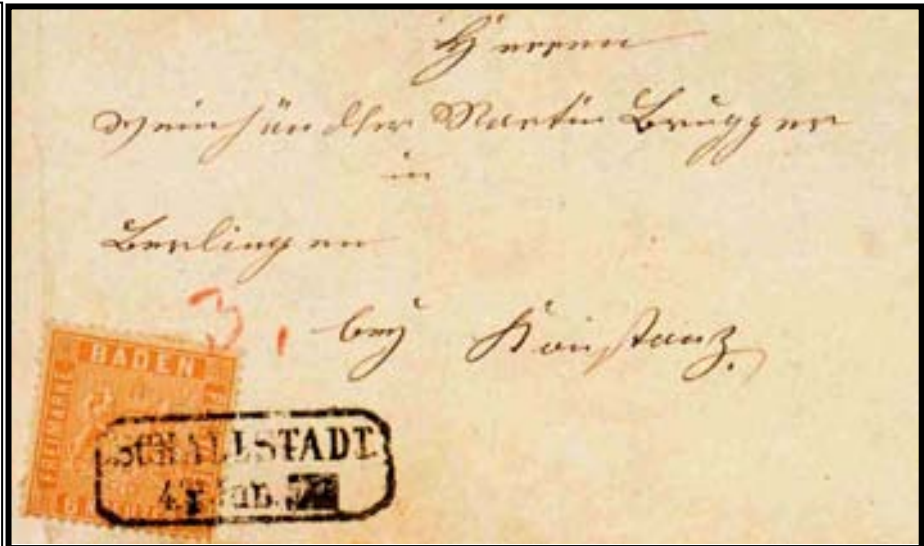 Herrn
Weinhändler Martin Brugger
in
Berlingen
bey Konstanz.
3
BADEN
FREIMARKE
SCHALLSTADT.